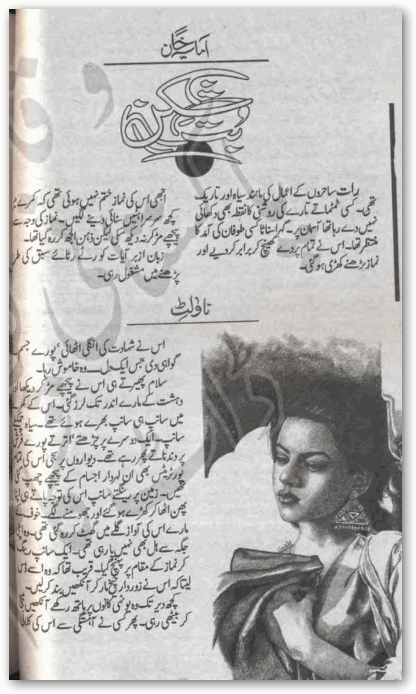 رات ساحروں کے اعمال کی مانند سیاہ اور تاریک
تھی۔ کسی ٹمٹماتے تارے کی روشنی کا نقطہ بھی دکھائی
نہیں دے رہا تھا آسمان پر۔ گہرا سناٹا کسی طوفان کی آمد کا
منتظر تھا۔ اس نے تمام پردے کھینچ کر برابر کر دیے اور
نماز پڑھنے کھڑی ہو گئی۔
ابھی اس کی نماز ختم نہیں ہوئی تھی کہ کمرے
کچھ سرسراہٹیں سنائی دینے لگیں۔ نماز کی وجہ
پیچھے مڑ کر نہ دیکھ سکی لیکن ذہن الجھ کر رہ گیا تھا۔
زبان از بر آیات کو رٹے رٹائے سبق کی طر
پڑھنے میں مشغول رہی۔
ناولٹ
اس نے شہادت کی انگلی اٹھائی، پورے جسم
گواہی دی بس ایک دل۔۔۔ وہ خاموش رہا۔
سلام پھیرتے ہی اس نے پیچھے مڑ کر دیکھا اور
دہشت کے مارے اندر تک لرز گئی۔ اس کے کمرے
میں سانپ ہی سانپ بھرے ہوئے تھے۔ سیاہ
سانپ۔ ایک دوسرے پر چڑھتے، اترتے پورے فرش
پر دندناتے پھر رہے تھے۔ دیواروں پر بھی اس کی تمام
پورٹریٹس بھی ان لہردار اجسام کے پیچھے چھپ
تھیں۔ زمین پر رینگتے سانپ اس کی توجہ پاتے ہی
پھن اٹھا کر کھڑے ہو گئے اور جھومنے لگے۔ خوف کے
مارے اس کی آواز گلے میں گھٹ کر رہ گئی تھی۔ وہ
جگہ سے ہل بھی نہیں پا رہی تھی۔ ایک سانپ رینگ
کر نماز کے مقام پر پہنچ گیا۔ قریب تھا کہ وہ اسے ڈس
لیتا کہ اس نے زوردار چیخ مار کر آنکھیں بند کر لیں۔
کچھ دیر تک وہ یونہی کانوں پر ہاتھ رکھے آنکھیں
کر بیٹھی رہی۔ پھر کسی نے آہستگی سے اس کی کلائی